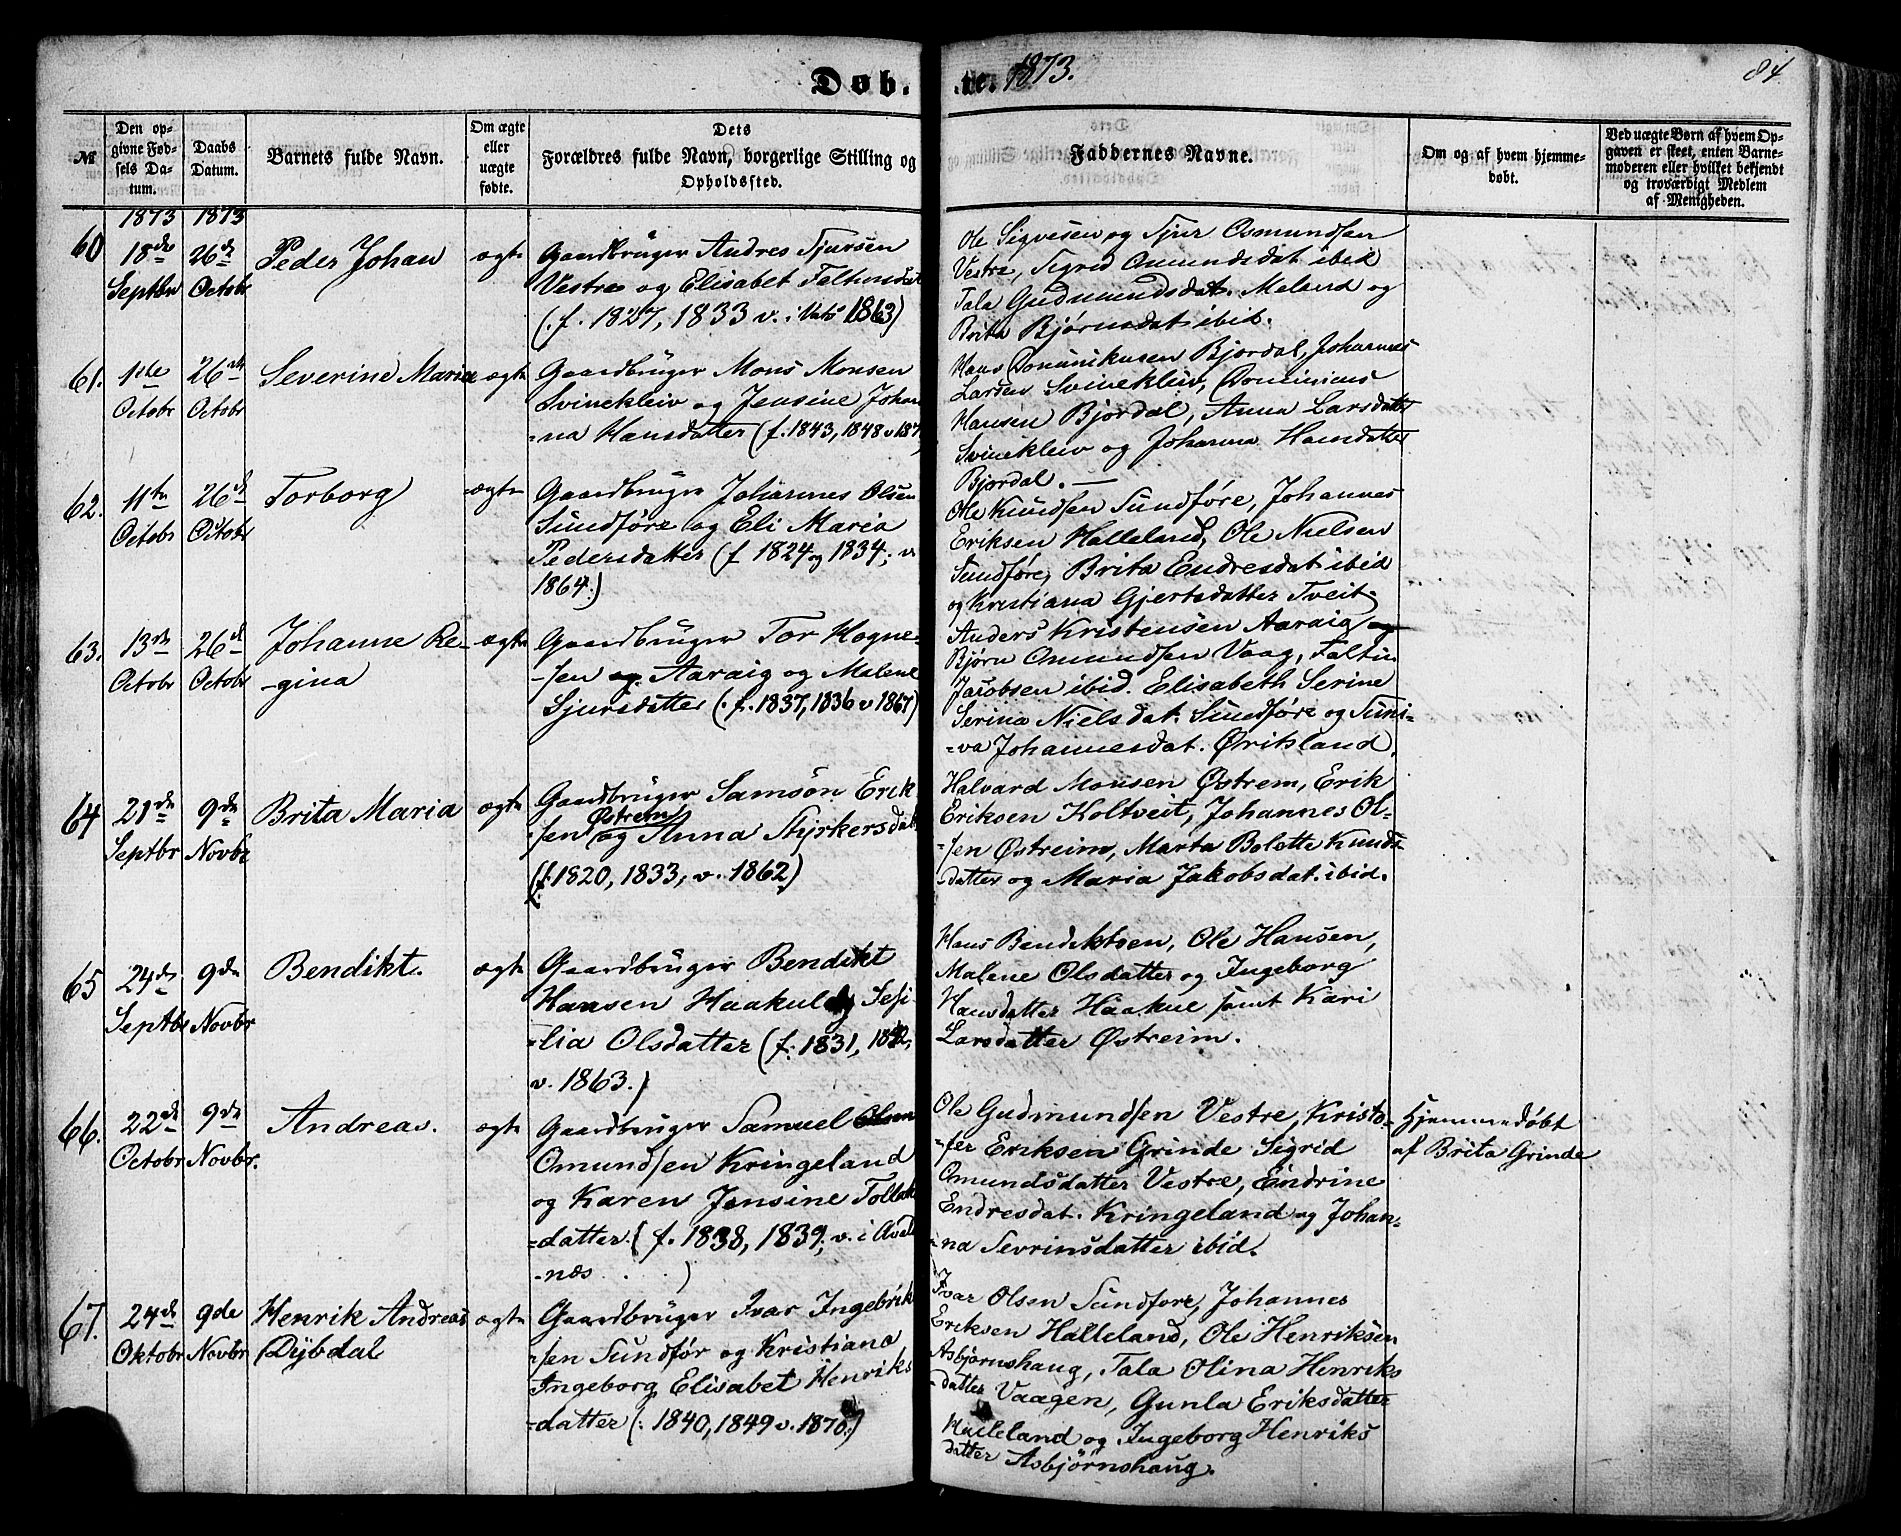 Døb.
te. 1873.
84
№
Den op-
givne Fød-
sels Da-
tum.
Daabs
Datum.
Barnets fulde Navn.
Om ægte
eller
uægte
fødte.
Dets
Forældres fulde Navn, borgerlige Stilling og
Opholdssted.
Faddernes Navne.
Om og af hvem hjemme-
døbt.
Ved uægte Børn af hvem Op-
gaven er skeet, enten Barne-
moderen eller hvilket bekjendt
og troværdigt Medlem
af Menigheden.
1873 1873
60
18de
Septbr
26de
Octobr
Peder Johan
ægte
Gaardbruger Andres Sjursen
Vestre og Elisabet
(. f. 1827, 1833 v. i Vats 1863)
Ole Sigvesen og Sjur Osmundsen
Vestre, Sigrid Omundsdat ibid
Tala Gudmundsdat. Meland og
Brita Bjørnsdat ibid.
61.
1ste
Octobr
26de
Octobr
Severine Maria
ægte
Gaardbruger Mons Monsen
Svinekleiv og Jensine Johan
-na Hansdatter (f. 1843, 1848 v 187
Hans Dominikusen Bjordal, Johannes
Larsen Svinekleiv, Dominicus
Hansen Bjordal, Anna Larsdatter
Svinekleiv og Johanna Hansdatter
Bjordal. —
62.
11te
Octobr
26de
Octobr
Torborg
ægte
Gaardbruger Johannes Olsen
Sundføre og Eli Maria
Pedersdatter (f 1824 og 1834; v
1864.)
Ole Knudsen Sundføre, Johannes
Eriksen Halleland, Ole Nielsen
Sundføre, Brita Endresdat ibid
og Kristiana Gjertsdatter Tveit
63.
13de
Octobr
26de
Octobr
Johanne Re-
-gina
ægte
Gaardbruger Tor Hogne-
-sen og Aaraig og Malene
Sjursdatter (. f. 1837, 1836 v 1867)
Anders Kristensen Aaraig og
Bjørn Omundsen Vaag, Faltin
Jacobsen ibid. Elisabeth Serine
Serina Nielsdat. Sundføre og Suni-
-va Johannesdat. Øritsland.
64
21de
Septbr
9de
Novbr
Brita Maria
ægte
Gaardbruger Samson Erik
-sen Østrem og Anna Styrkersdat
(f. 1820, 1833, v. 1862)
Halvard Monsen Østrem, Erik
Eriksen Koltveit, Johannes Ol-
-sen Østreim, Marta Bolette Knuds
-datter og Maria Jakobsdat. ibid.
65
24de
Septbr
9de
Novbr
Bendikt.
ægte
Gaardbruger Bendikt
Hansen Haakul og Sesi-
-lia Olsdatter (f. 1831,
v. 1863.)
Hans Bendiktsen, Ole Hansen,
Malene Olsdatter og Ingeborg
Hansdatter Haakul samt Kari
Larsdatter Østreim.
66.
22de
Octobr
9de
Novbr.
Andreas.
ægte
Gaardbruger Samuel Olsen
Omundsen Kringeland
og Karen Jensine Tollak
-datter. (f. 1838, 1839; v. i Avald
-næs . . .)
Ole Gudmundsen Vestre, Kristo-
-fer Eriksen Grinde Sigrid
Omundsdatter Vestre, Endrine
Endresdat. Kringeland og Johan-
-na Sevrinsdatter ibid.
Hjemmedøbt
af Brita Grinde
67.
24de
Oktobr
9de
Novbr
Henrik Andreas
Dybdal
ægte
Gaardbruger Ivar Ingebrik
-sen Sundfør og Kristiana
Ingeborg Elisabet Henriks
-datter (. 1840, 1849 v. 1870.)
Ivar Olsen Sundføre, Johannes
Eriksen Halleland, Ole Henriksen
Asbjørnshaug, Tala Olina Henriks
-datter Vaagen, Gunla Eriksdatter
Halleland og Ingeborg Henriks
datter Asbjørnshaug.